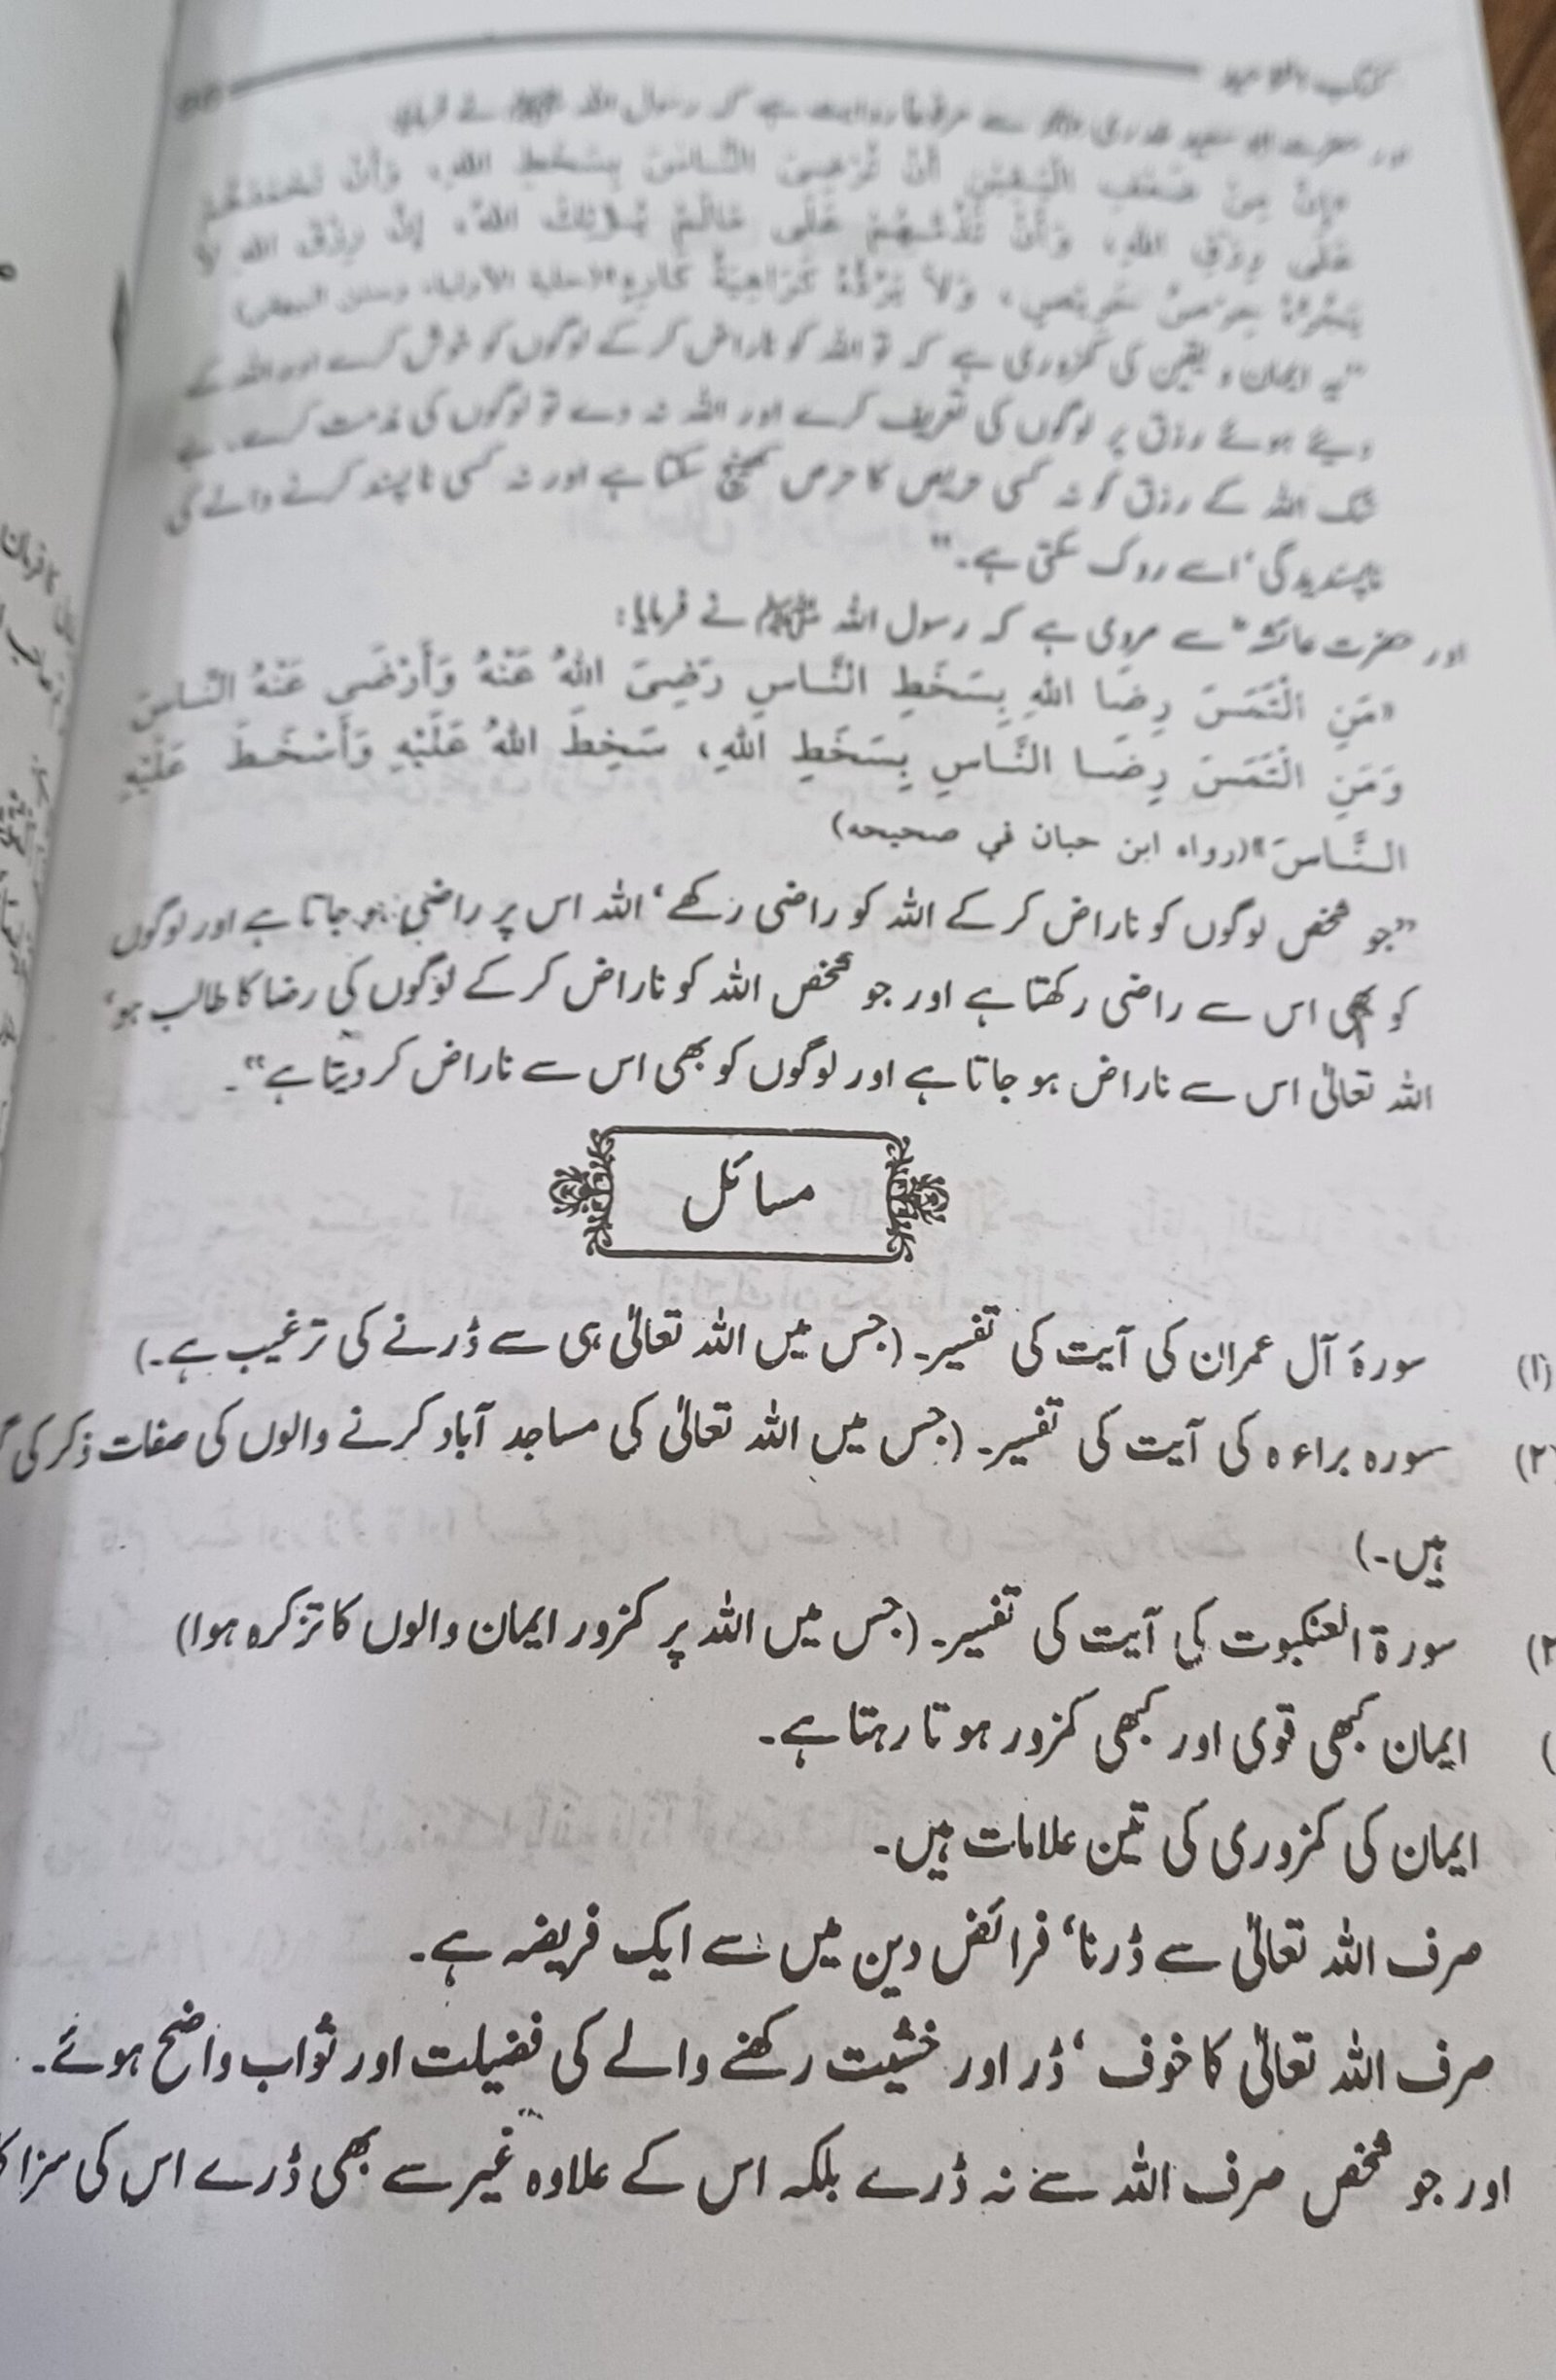 کتاب التوحید
اور حضرت ابو سعید خدری سے مرفوعاً روایت ہے کہ رسول اللہ ﷺ نے فرمایا
«إِنَّ مِنْ ضَعْفِ الْيَقِيْنِ أَنْ تُرْضِيَ النَّاسَ بِسَخَطِ اللهِ، وَأَنْ تَحْمَدَهُمْ
عَلَى رِزْقِ اللهِ، وَأَنْ تَذُمَّهُمْ عَلَى مَالَمْ يُؤْتِكَ اللهُ، إِنَّ رِزْقَ اللهِ لَا
يَجُرُّهُ حِرْصُ حَرِيْصٍ، وَلَا يَرُدُّهُ كَرَاهِيَةُ كَارِهٍ
”یہ ایمان و یقین کی کمزوری ہے کہ تو اللہ کو ناراض کر کے لوگوں کو خوش کرے اور اللہ کے
دیئے ہوئے رزق پر لوگوں کی تعریف کرے اور اللہ نہ دے تو لوگوں کی مذمت کرے۔ بے
شک اللہ کے رزق کو نہ کسی حریص کا حرص کھینچ سکتا ہے اور نہ کسی ناپسند کرنے والے کی
ناپسندیدگی‘ اسے روک سکتی ہے۔“
اور حضرت عائشہ سے مروی ہے کہ رسول اللہ ﷺ نے فرمایا:
«مَنِ الْتَمَسَ رِضَا اللهِ بِسَخَطِ النَّاسِ رَضِيَ اللهُ عَنْهُ وَأَرْضَى عَنْهُ النَّاسَ
وَمَنِ الْتَمَسَ رِضَا النَّاسِ بِسَخَطِ اللهِ، سَخِطَ اللهُ عَلَيْهِ وَأَسْخَطَ عَلَيْهِ
النَّاسَ»(رواه ابن حبان في صحيحه)
”جو شخص لوگوں کو ناراض کر کے اللہ کو راضی رکھے‘ اللہ اس پر راضی ہو جاتا ہے اور لوگوں
کو بھی اس سے راضی رکھتا ہے اور جو شخص اللہ کو ناراض کر کے لوگوں کی رضا کا طالب ہو‘
اللہ تعالیٰ اس سے ناراض ہو جاتا ہے اور لوگوں کو بھی اس سے ناراض کر دیتا ہے“۔
مسائل
(۱) سورۂ آل عمران کی آیت کی تفسیر۔ (جس میں اللہ تعالیٰ ہی سے ڈرنے کی ترغیب ہے۔)
(۲) سورہ براءہ کی آیت کی تفسیر۔ (جس میں اللہ تعالیٰ کی مساجد آباد کرنے والوں کی صفات ذکر کی
ہیں۔)
سورۃ العنکبوت کی آیت کی تفسیر۔ (جس میں اللہ پر کمزور ایمان والوں کا تزکرہ ہوا)
ایمان کبھی قوی اور کبھی کمزور ہو تا رہتا ہے۔
ایمان کی کمزوری کی تین علامات ہیں۔
صرف اللہ تعالیٰ سے ڈرنا‘ فرائض دین میں سے ایک فریضہ ہے۔
صرف اللہ تعالیٰ کا خوف‘ ڈر اور خشیت رکھنے والے کی فضیلت اور ثواب واضح ہوئے۔
اور جو شخص صرف اللہ سے نہ ڈرے بلکہ اس کے علاوہ غیر سے بھی ڈرے اس کی سزا